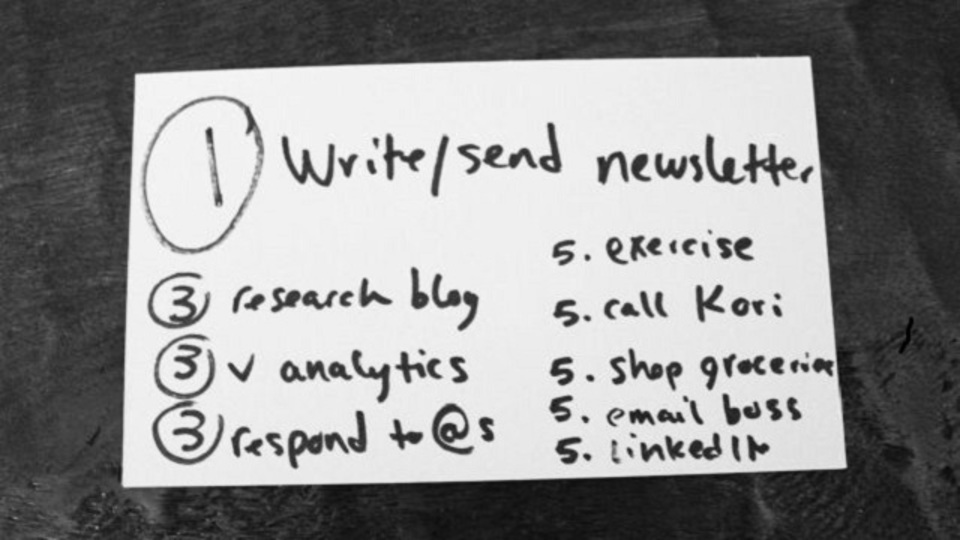 1 Write/send newsletter
3 research blog
3 v analytics
3 respond to @s
5. exercise
5. call Kori
5. shop groceries
5. email boss
5. LinkedIn